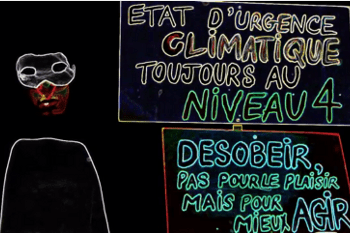 ETAT D'URGENCE
CLIMATIQUE
TOUJOURS AU
NIVEAU 4
DESOBEIR,
PAS POUR LE PLAISIR
MAIS POUR
MIEUX AGIR